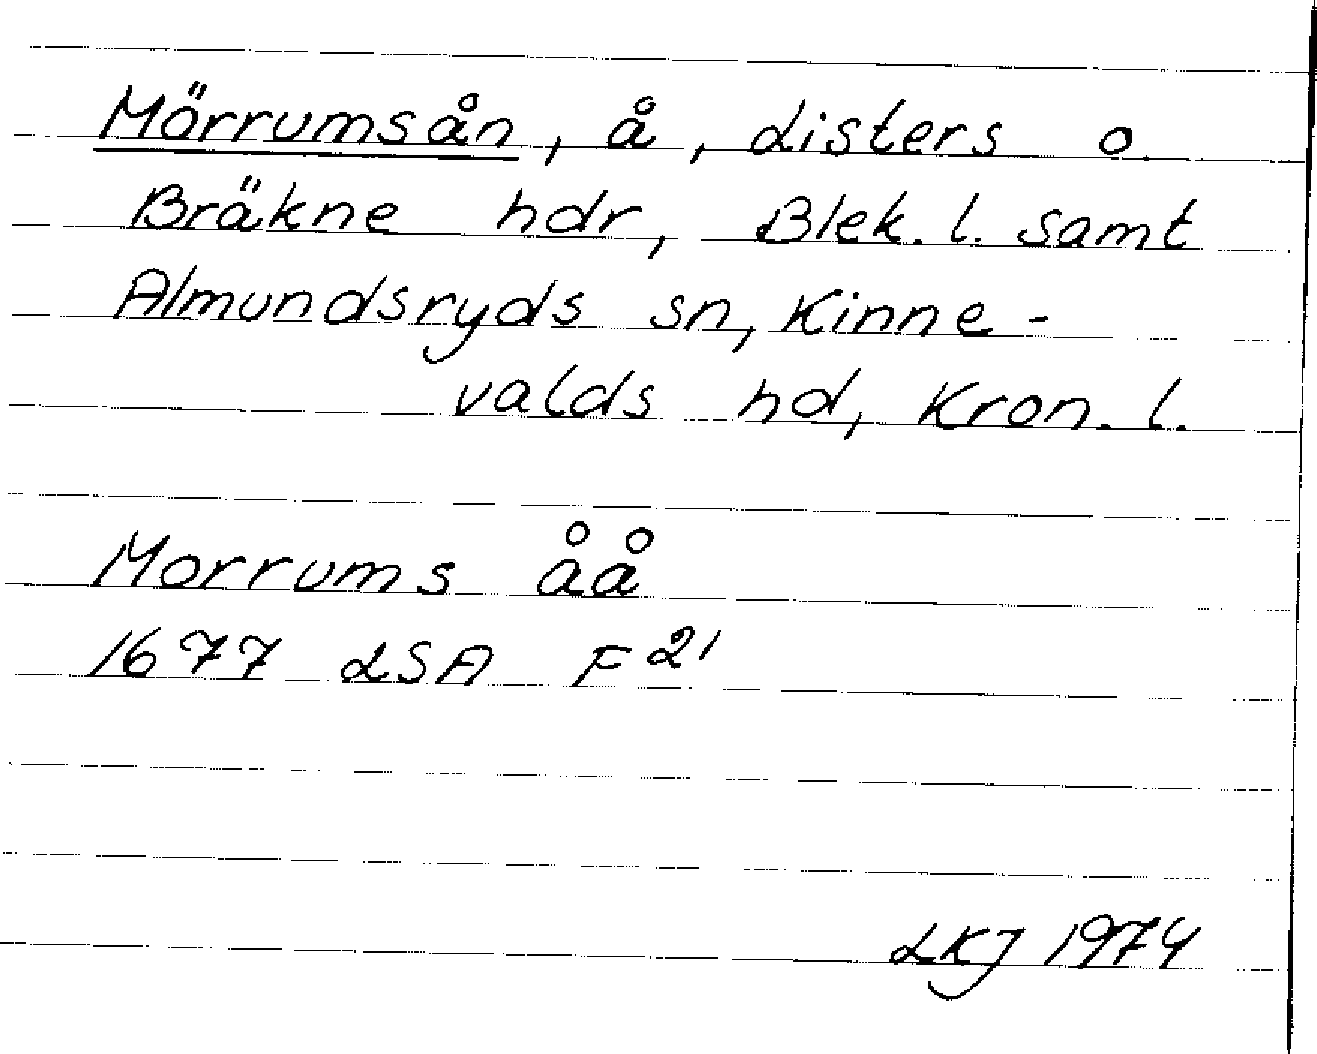 Mörrumsån, å, Listers o.
Bräkne hdr, Blek. l. samt
Almundsryds sn, Kinne-
valds hd, Kron. l.
Morrums åå
1677 LSA F21
LKJ 1974